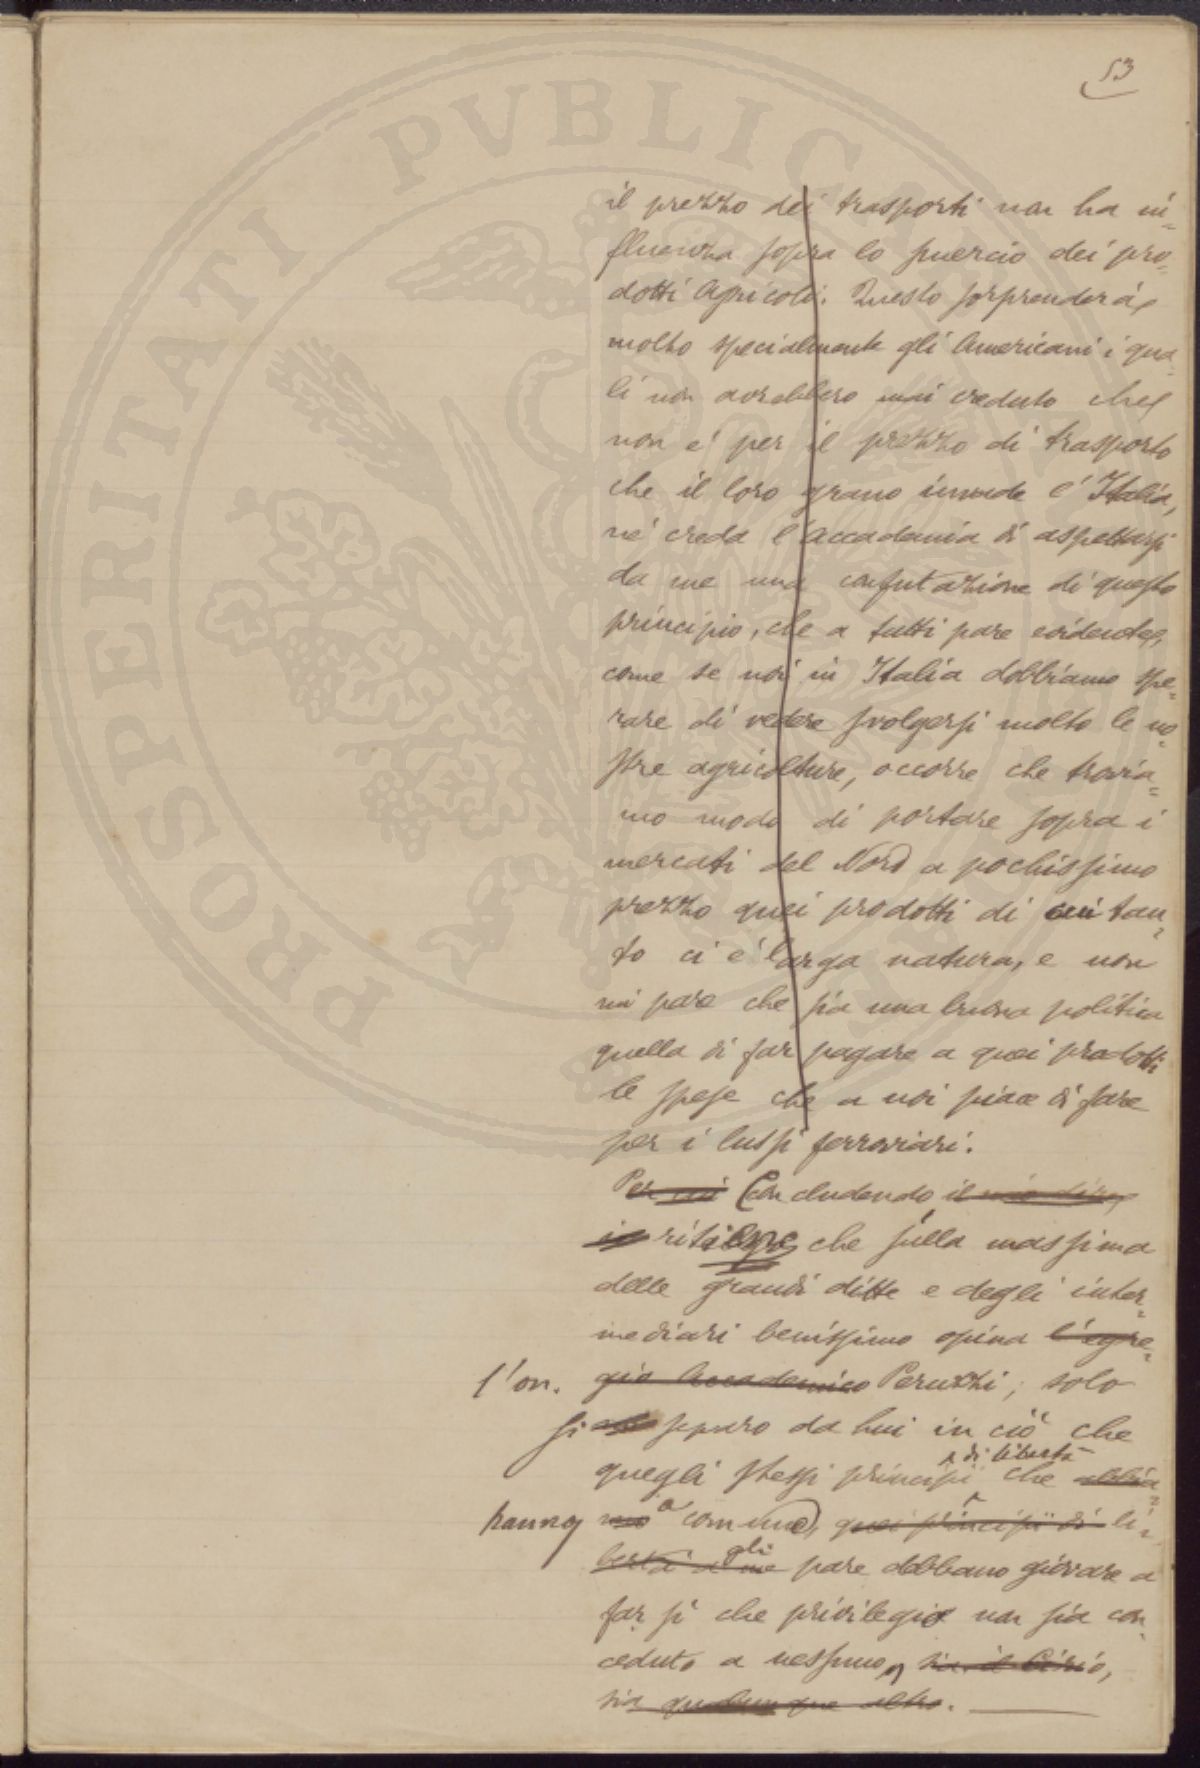 53
il prezzo dei trasporti non ha in=
fluenza sopra lo smercio dei pro=
dotti agricoli. Questo sorprenderà
molto specialmente gli Americani i qua=
li non avrebbero mai creduto che
non e' per il prezzo di trasporto
che il loro grano invade l'Italia,
nè creda l'Accademia di aspettarsi
da me una confutazione di questo
principio, che a tutti pare evidente,
come se noi in Italia dobbiamo spe=
rare di vedere svolgersi molto le no=
stre agricolture, occorre che trovia=
mo modo di portare sopra i
mercati del Nord a pochissimo
prezzo quei prodotti di cui tan=
to ci e' larga natura, e non
mi pare che sia una buona politica
quella di far pagare a quei prodotti
le spese che a noi piace di fare
per i lussi ferroviari.
Per me Concludendo il mio dire
io ritiene che sulla massima
delle grandi ditte e degli inter=
mediari benissimo opina l'egre=
l'on. gio Accademico Peruzzi; solo
si separo da lui in ciò che
quegli stessi principii di libertà che abbia=
hanno mo a comune, quei principii di li=
bertà a me gli pare debbano giovare a
far sì che privilegio non sia con=
ceduto a nessuno, sia il Cirio,
sia qualunque altro.
PROSPERITATI PVBLICAE